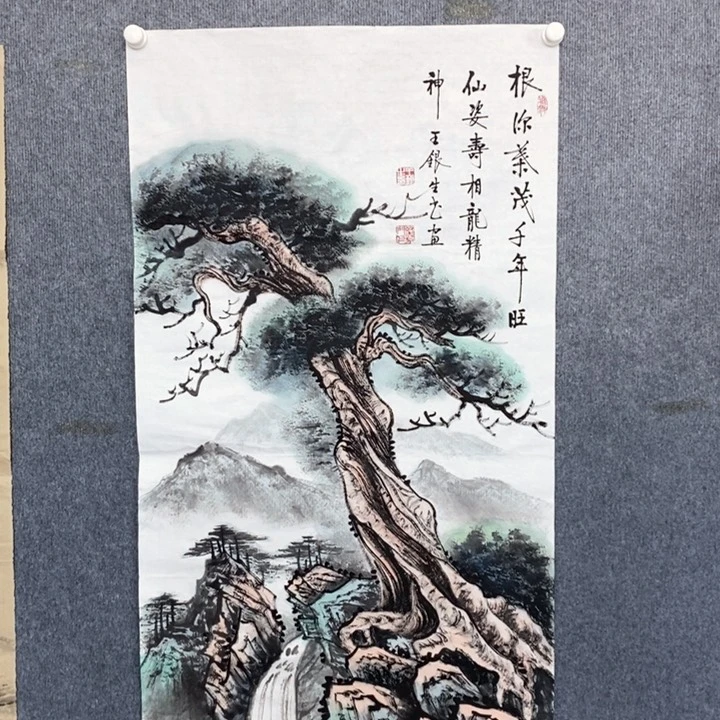 根深葉茂千年旺
仙姿壽相龍精
神
王銀生書畫